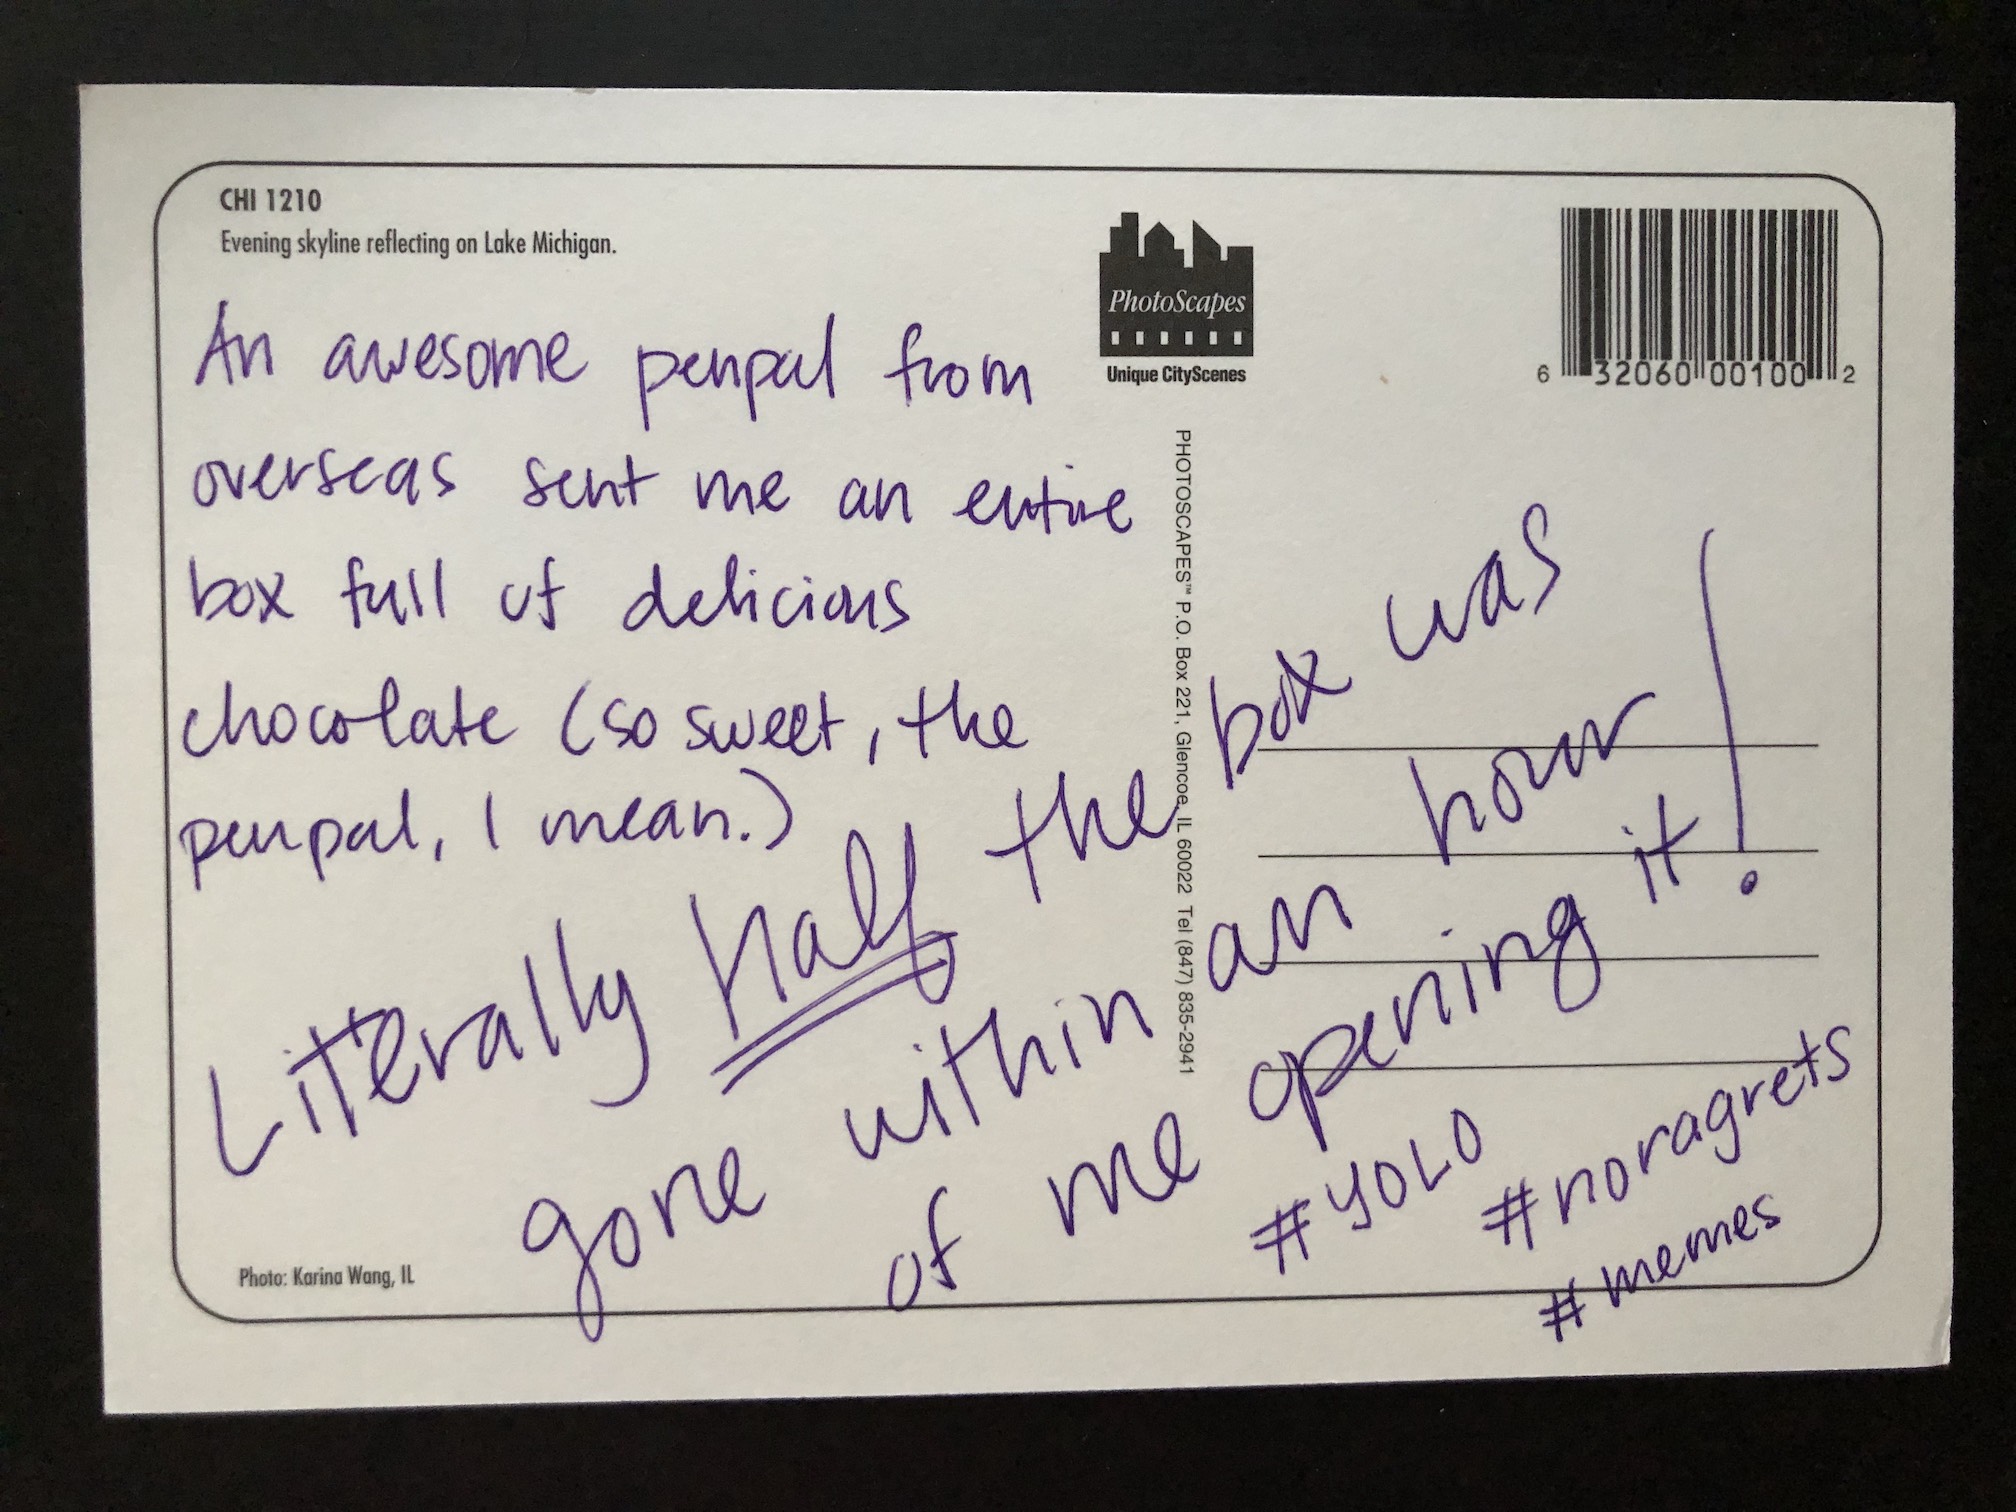 CHI 1210
Evening skyline reflecting on Lake Michigan.
PhotoScapes
Unique CityScenes
6 32060 00100 2
PHOTOSCAPES™ P.O. Box 221, Glencoe, IL 60022 Tel (847) 835-2941
An awesome penpal from
overseas sent me an entire
box full of delicious
chocolate (so sweet, the
penpal, I mean.)
Literally half the box was
gone within an hour
of me opening it!
#YOLO
#noragrets
#memes
Photo: Karina Wang, IL